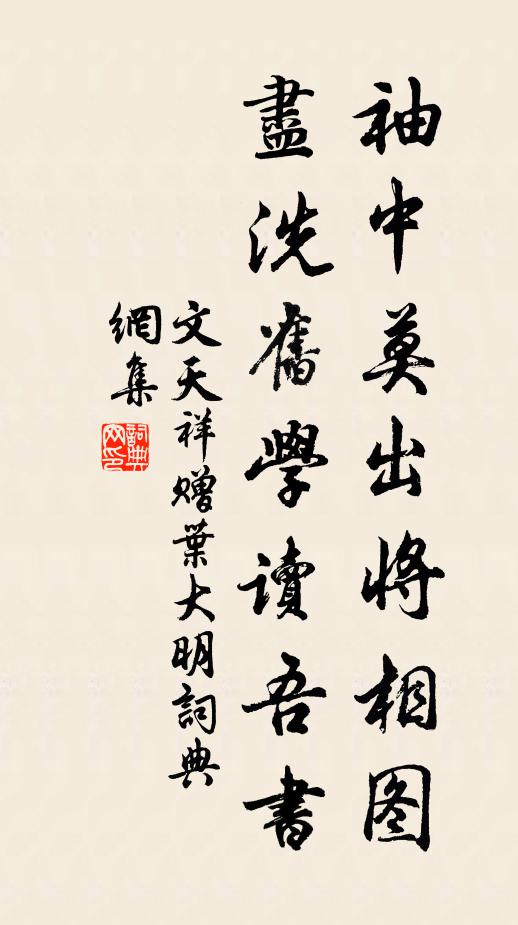 袖中莫出將相图
盡洗舊學讀吾書
文天祥赠葉大明詞典
網集
詞典
网印